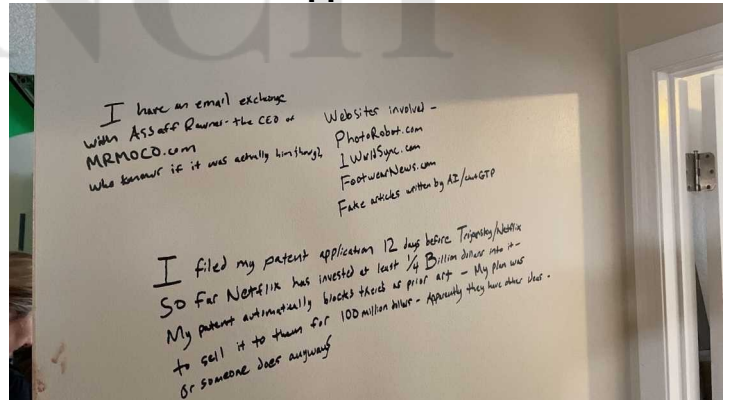 I have an email exchange
with Assaff Rawner - the CEO of
MRMOCO.com
who knows if it was actually him though
Websites involved -
PhotoRobot.com
IWorldSync.com
FootwearNews.com
Fake articles written by AI/chatGTP
I filed my patent application 12 days before Tripensky/Netflix
So far Netflix has invested at least 1/4 Billion dollars into it -
My patent automatically blocks theirs as prior art - My plan was
to sell it to them for 100 million dollars - Apparently they have other ideas.
Or someone does anyways